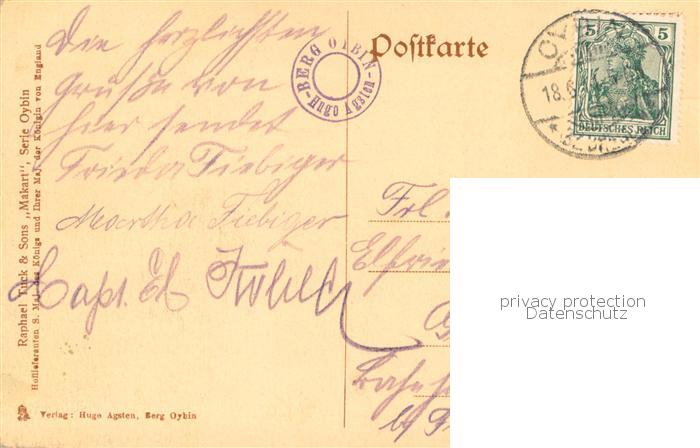 Die herzlichsten
Grüße von
hier sendet
Frieda Fiebiger
Martha Fiebiger
Postkarte
BERG OYBIN
Hugo Agsten
5 5
DEUTSCHES REICH
18.6
Raphael Tuck & Sons „Makart", Serie Oybin
Hoflieferanten S. Maj. des Königs und Ihrer Maj. der Königin von England
Verlag: Hugo Agsten, Berg Oybin
Frl.
privacy protection
Datenschutz